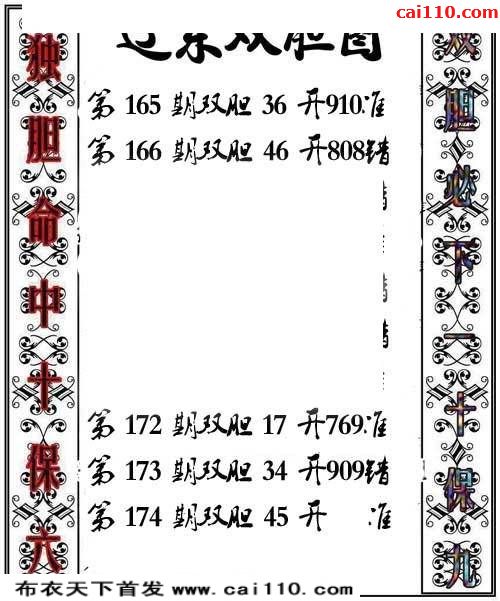 cai110.com
辽东双胆图
独胆命中十保六
第 165 期双胆 36 开910准
第 166 期双胆 46 开808错
第 172 期双胆 17 开769准
第 173 期双胆 34 开909错
第 174 期双胆 45 开 准
双胆必下一十保九
布衣天下首发 www.cai110.com